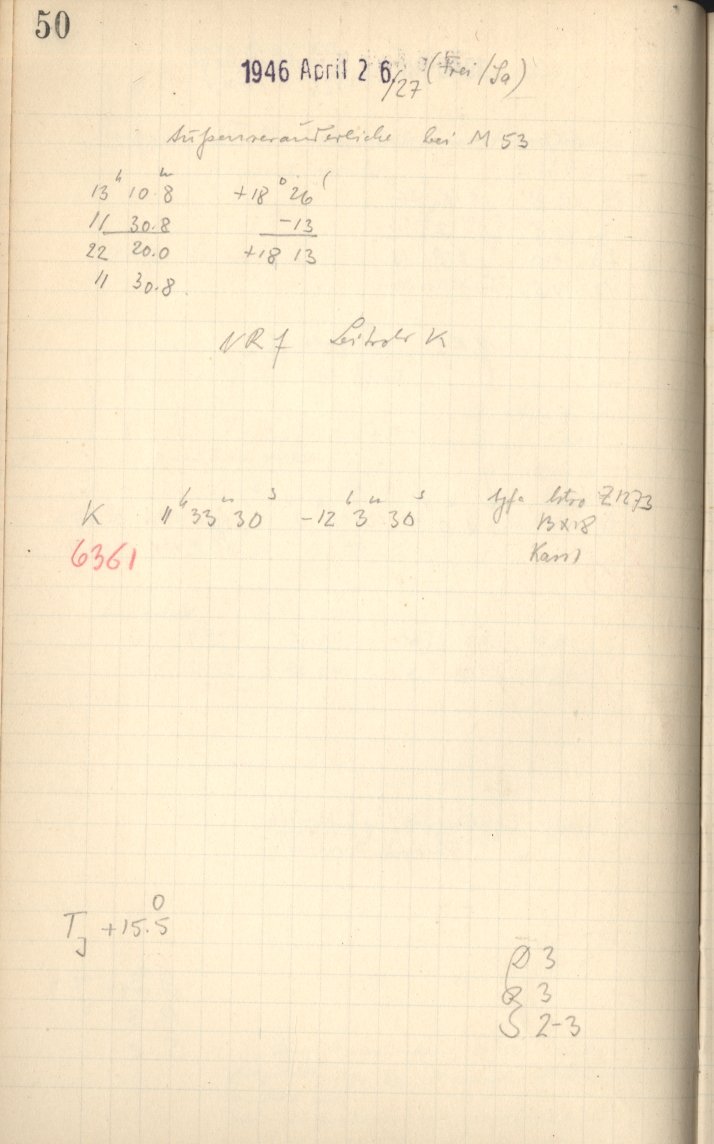 50
1946 April 26/27 (Frei/Sa)
Außenveränderliche bei M 53
13ʰ 10ᵐ.8 +18° 26′
11 30.8 -13
22 20.0 +18 13
11 30.8
K
K 11ʰ 33ᵐ 30ˢ -12ʰ 3ᵐ 30ˢ Agfa Astro Z 1273
6361
T +15.5°
D 3
R 3
S 2-3